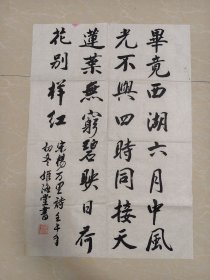 畢竟西湖六月中風
光不與四時同接天
蓮葉無窮碧映日荷
花別樣紅
宋楊万里詩壬午年
初冬
堂書